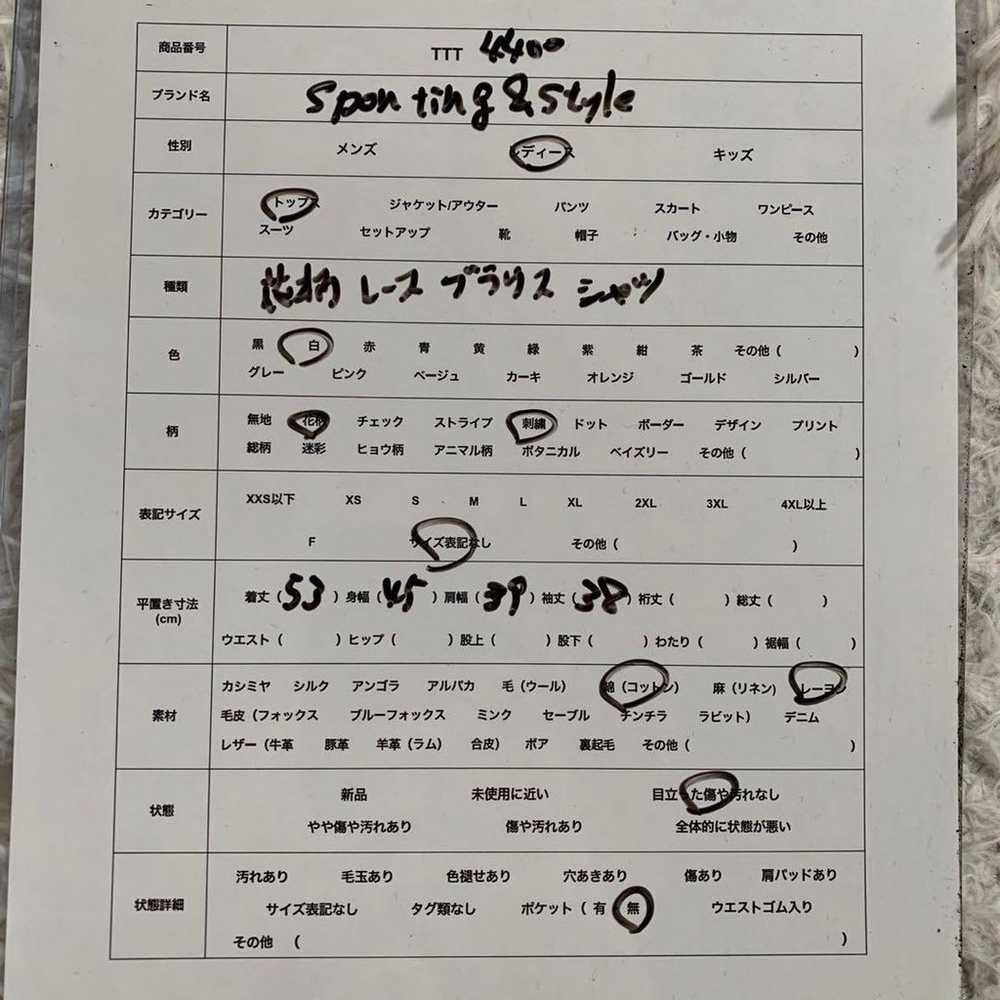 商品番号 TTT 4400
ブランド名 Sporting & Style
性別 メンズ レディース キッズ
カテゴリー トップス ジャケット/アウター パンツ スカート ワンピース
スーツ セットアップ 靴 帽子 バッグ・小物 その他
種類 花柄 レース ブラウス シャツ
色 黒 白 赤 青 黄 緑 紫 紺 茶 その他 ( )
グレー ピンク ベージュ カーキ オレンジ ゴールド シルバー
柄 無地 花柄 チェック ストライプ 刺繍 ドット ボーダー デザイン プリント
総柄 迷彩 ヒョウ柄 アニマル柄 ボタニカル ペイズリー その他 ( )
表記サイズ XXS以下 XS S M L XL 2XL 3XL 4XL以上
F サイズ表記なし その他 ( )
平置き寸法 (cm) 着丈 ( 53 ) 身幅 ( 45 ) 肩幅 ( 39 ) 袖丈 ( 38 ) 裄丈 ( ) 総丈 ( )
ウエスト ( ) ヒップ ( ) 股上 ( ) 股下 ( ) わたり ( ) 裾幅 ( )
素材 カシミヤ シルク アンゴラ アルパカ 毛 (ウール) 綿 (コットン) 麻 (リネン) レーヨン
毛皮 (フォックス ブルーフォックス ミンク セーブル チンチラ ラビット) デニム
レザー (牛革 豚革 羊革 (ラム) 合皮) ボア 裏起毛 その他 ( )
状態 新品 未使用に近い 目立った傷や汚れなし
やや傷や汚れあり 傷や汚れあり 全体的に状態が悪い
状態詳細 汚れあり 毛玉あり 色褪せあり 穴あきあり 傷あり 肩パッドあり
サイズ表記なし タグ類なし ポケット ( 有 ・ 無 ウエストゴム入り
その他 ( )